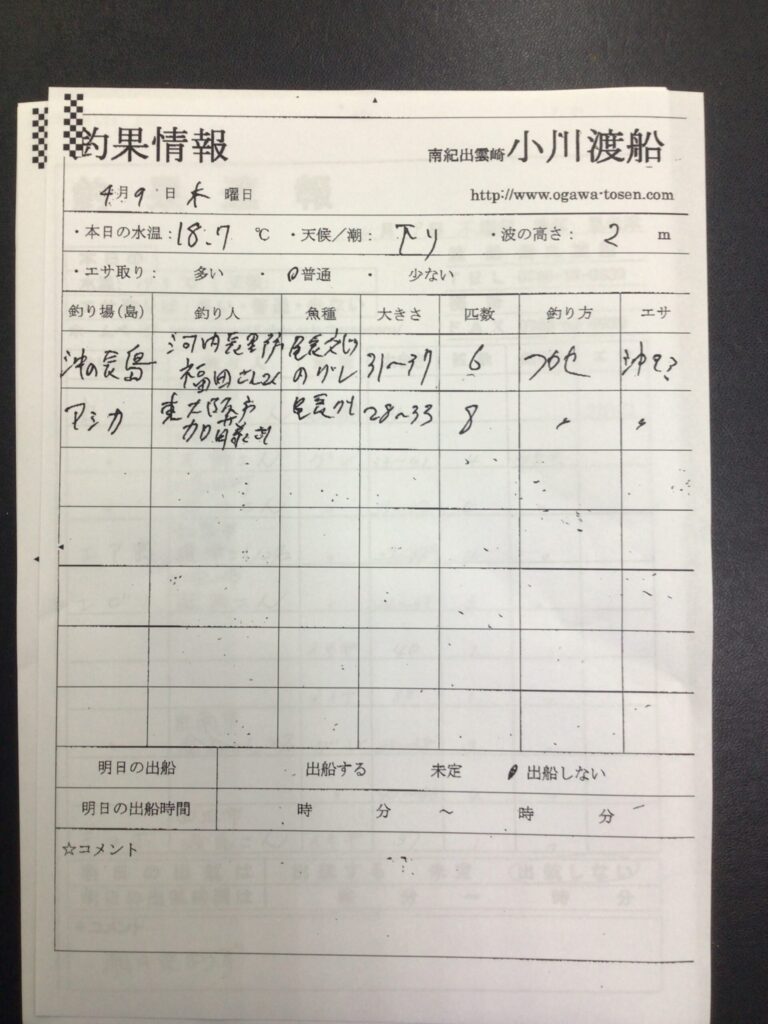 釣果情報
南紀出雲崎 小川渡船
4月9日 木 曜日
http://www.ogawa-tosen.com
・本日の水温:18.7 ℃ ・天候/潮:下り ・波の高さ: 2 m
・エサ取り: 多い ・ 普通 ・ 少ない
釣り場(島) 釣り人 魚種 大きさ 匹数 釣り方 エサ
沖の長島 河内長野市 福田さん 尾長交じりのグレ 31~37 6 フカセ
アシカ 東大阪市 加藤さん 尾長グレ 28~33 8 〃 〃
明日の出船 出船する 未定 出船しない
明日の出船時間 時 分 ~ 時 分
☆コメント